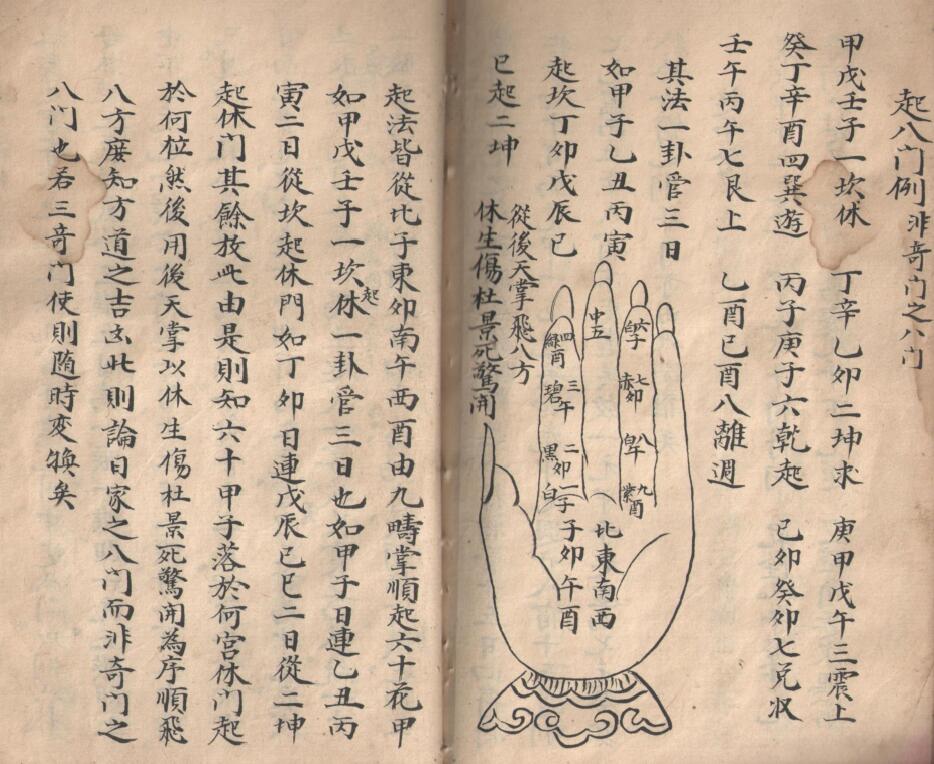 起八门例 非奇门之八门
甲戊壬子一坎休 丁辛乙卯二坤求 庚甲戊午三震上
癸丁辛酉四巽遊 丙子庚子六乾起 己卯癸卯七兌收
壬午丙午七艮上 乙酉己酉八離週
其法一卦管三日
如甲子乙丑丙寅
起坎丁卯戊辰巳
巳起二坤
從後天掌飛八方
休生傷杜景死驚開
六子白
七卯赤
八午白
九酉紫
中五
四酉綠
三午碧
二卯黑
一子白
北東南西
子卯午酉
起法皆從北子東卯南午西酉由九疇掌順起六十花甲
如甲戊壬子一坎休起一卦管三日也如甲子日連乙丑丙
寅二日從坎起休門如丁卯日連戊辰巳巳二日從二坤
起休门其餘放此由是則知六十甲子落於何宫休门起
於何位然後用後天掌以休生傷杜景死驚開為序順飛
八方庶知方道之吉凶此則論日家之八门而非奇门之
八门也若三奇门使則随時変換矣